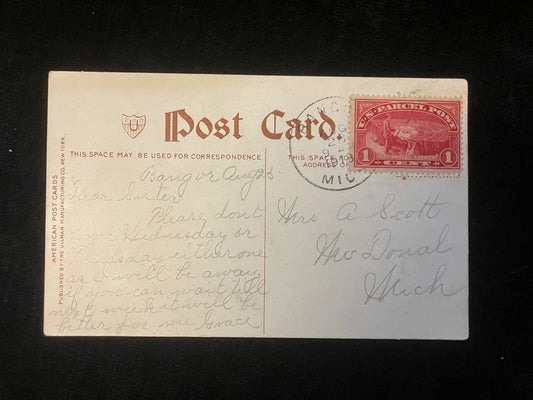 U.S. PARCEL POST
1 CENT 1
BANGOR
AUG
MICH
U
Post Card.
THIS SPACE MAY BE USED FOR CORRESPONDENCE
THIS SPACE
ADDRESS
AMERICAN POST CARDS.
PUBLISHED BY THE ULLMAN MANUFACTURING CO. NEW YORK.
Bangor Aug 25
Dear Sister
Please dont
come Wednesday or
Thursday either one
as I will be away.
if you can wait till
next week it will be
better for me Grace
Mrs A Scott
McDonal
Mich